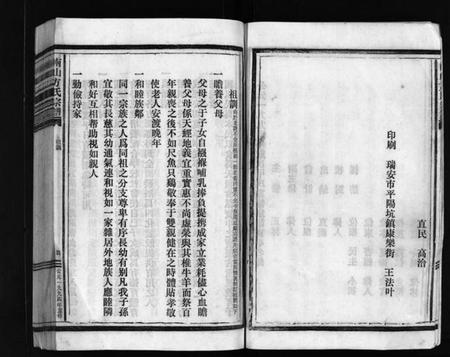 直民 高治
印刷 瑞安市平陽坑鎮康樂街 王法叶
祖訓
一贍養父母
父母之于子女自襁褓哺乳捧負提携成家立業耗儘心血贍
養父母係天經地義宜重實惠不尚虛榮與其椎牛羊而祭百
年親喪之後不如尺魚只鷄敬奉于雙親健在之時體貼孝敬
使老人安渡晚年
一和睦族鄰
同一宗族之人爲同祖之分支尊卑有序長幼有別凡我子孫
宜敬其長慈其幼通氣連和視如一家雜居外地族人應睦隣
和好互相幫助視如親人
一勤儉持家
山方氏宗